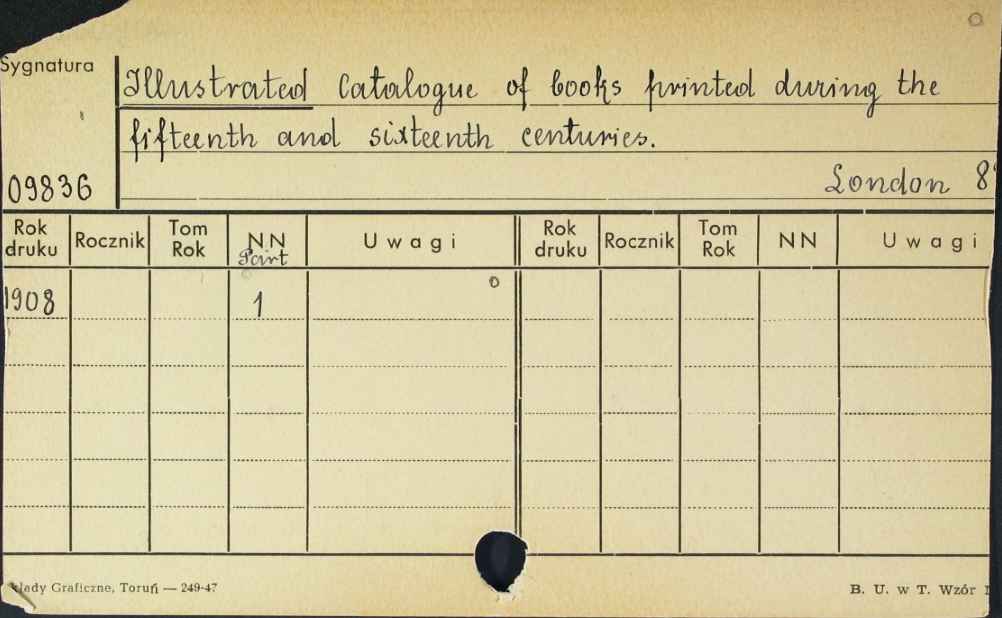 Sygnatura
Illustrated Catalogue of books printed during the
fifteenth and sixteenth centuries.
09836
London 8°
Rok druku Rocznik Tom Rok NN Part Uwagi Rok druku Rocznik Tom Rok NN Uwagi
1908 1
łady Graficzne, Toruń — 249-47
B. U. w T. Wzór